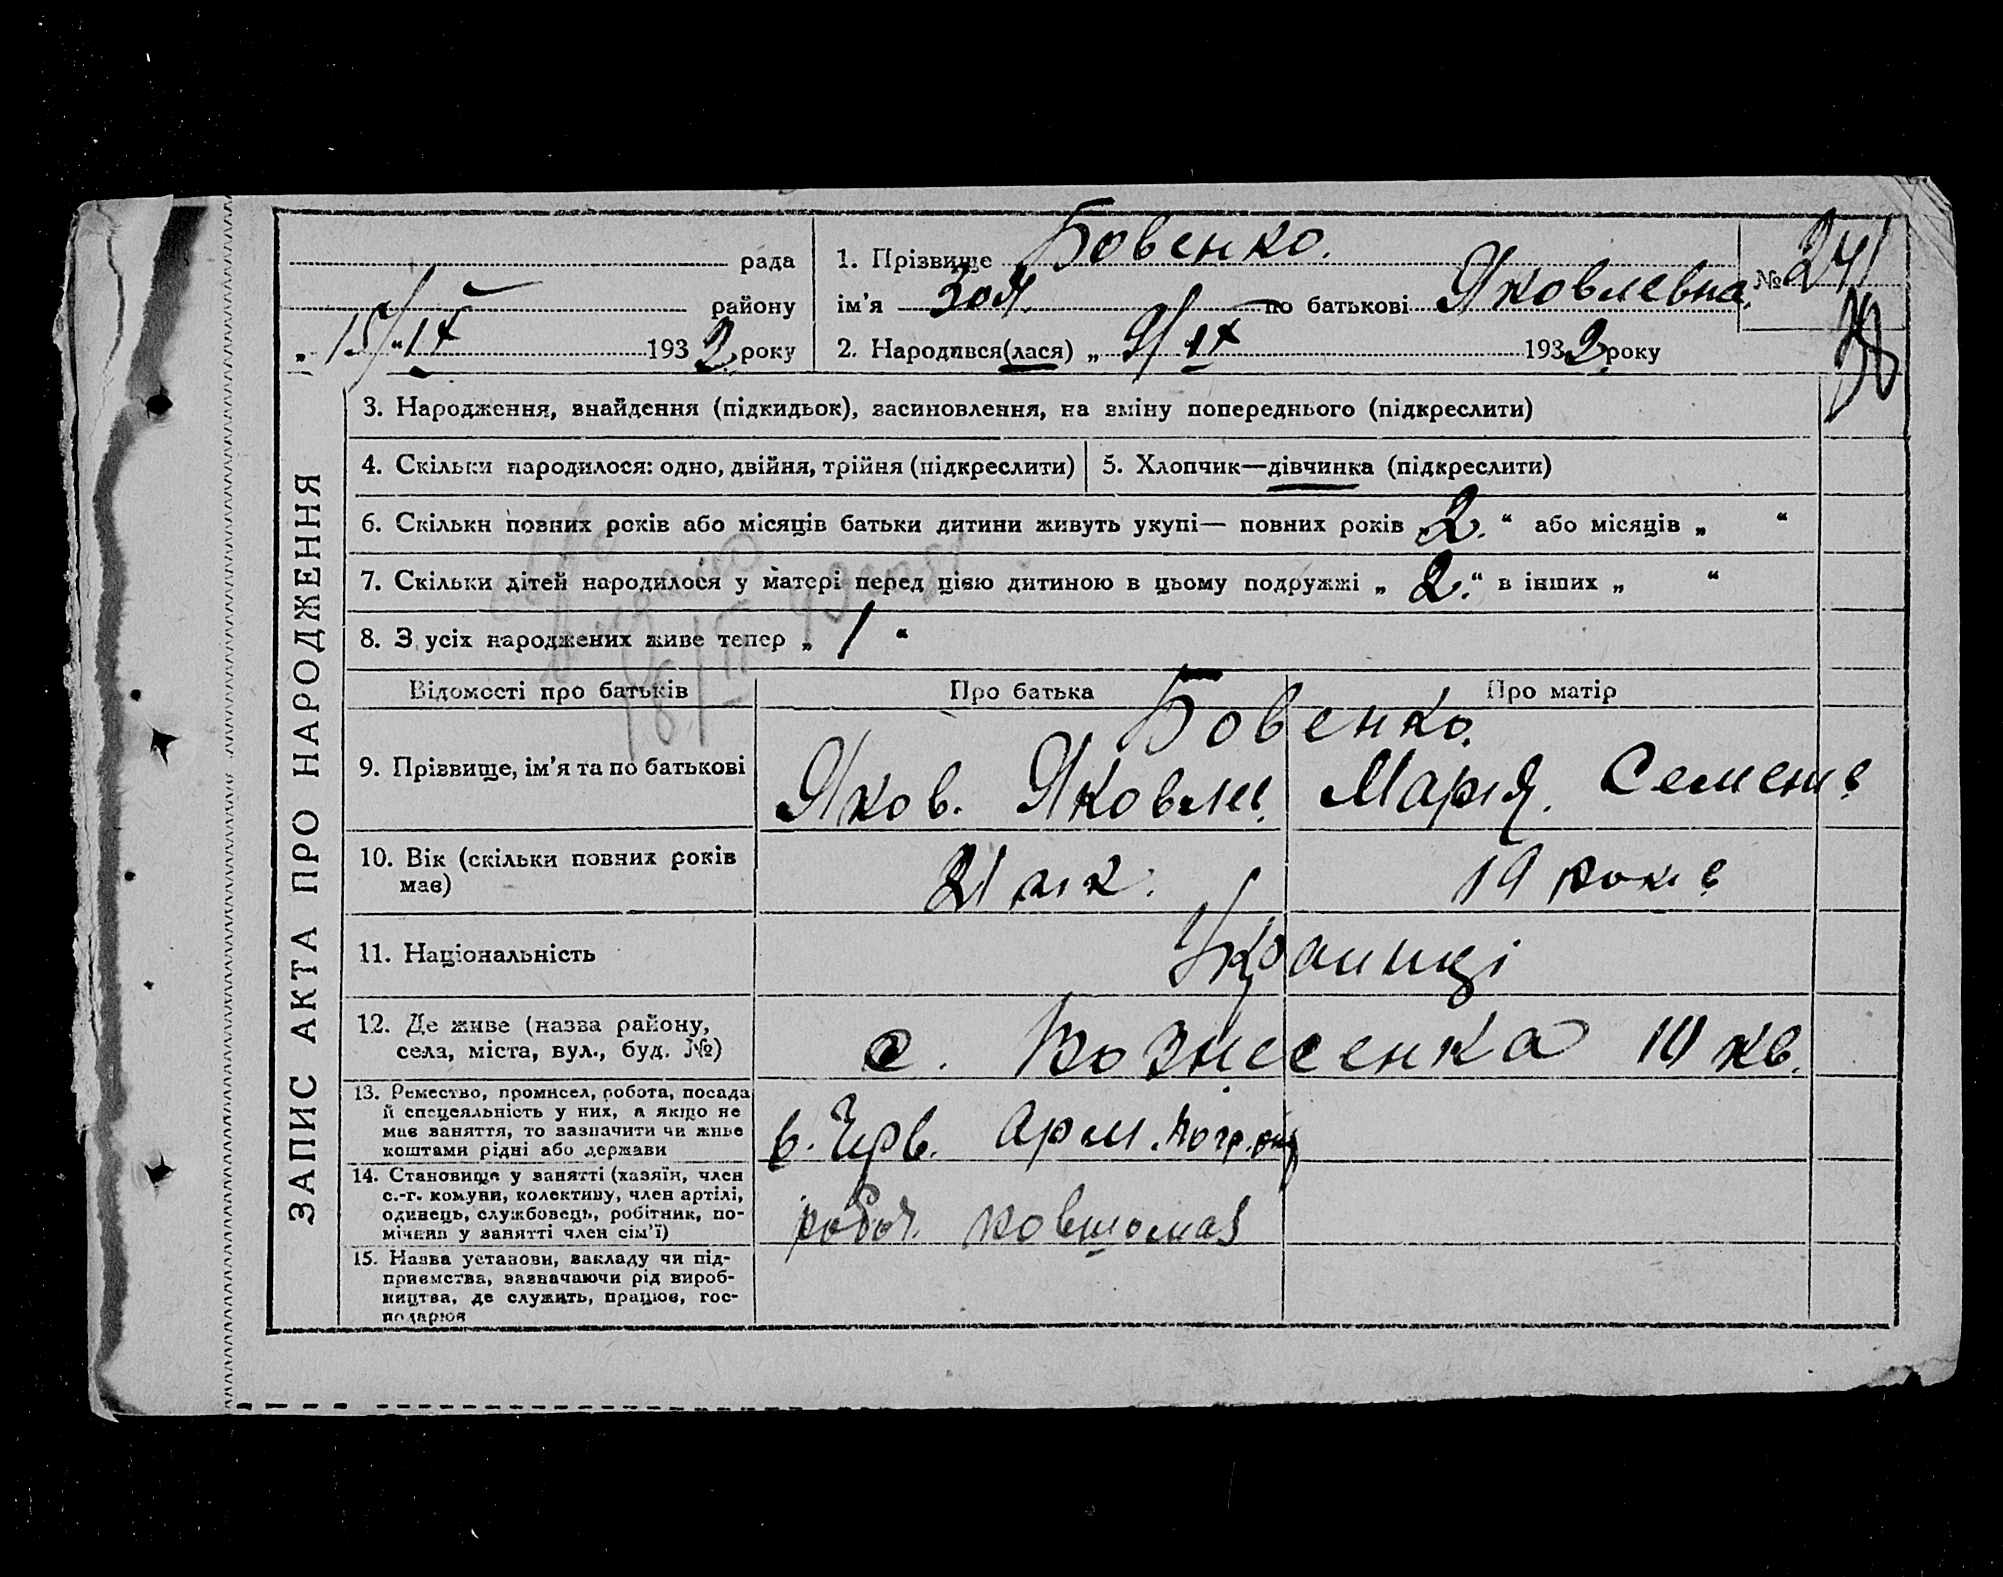 рада
району
„15/“ IX 1932 року
1. Прізвище Бовенко.
ім’я Зоя по батькові Яковлевна.
2. Народився(лася) „9/ IX 1932 року
№ 241
38
ЗАПИС АКТА ПРО НАРОДЖЕННЯ
3. Народження, знайдення (підкидьок), засиновлення, на зміну попереднього (підкреслити)
4. Скільки народилося: одно, двійня, трійня (підкреслити)
5. Хлопчик—дівчинка (підкреслити)
6. Скільки повних років або місяців батьки дитини живуть укупі— повних років 2. “ або місяців „ “
7. Скільки дітей народилося у матері перед цією дитиною в цьому подружжі „ 2. “ в інших „ “
8. З усіх народжених живе тепер „ 1 “
Відомості про батьків
Про батька
Про матір
Бовенко.
9. Прізвище, ім’я та по батькові
Яков. Яковлев.
Марія. Семенів
10. Вік (скільки повних років
має)
21 рік.
19 років
11. Національність
Українці
12. Де живе (назва району,
села, міста, вул., буд. №)
с. Вознесенка 10 кв.
13. Ремество, промисел, робота, посада
й спеціяльність у них, а якщо не
має заняття, то зазначити чи живе
коштами рідні або держави
в. Черв. Арм.
14. Становище у занятті (хазяїн, член
с.-г. комуни, колективу, член артілі,
одинець, службовець, робітник, по-
мічний у занятті член сім’ї)
робоч.
15. Назва установи, закладу чи під-
приємства, зазначаючи рід вироб-
ництва, де служить, працює, гос-
подарює